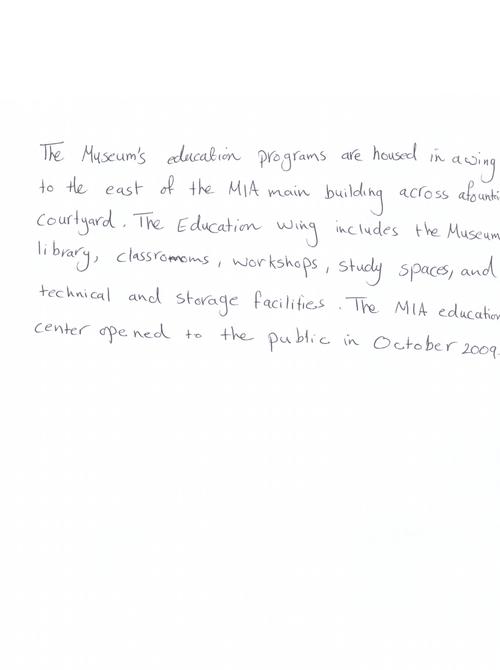 The Museum's education programs are housed in a wing
to the east of the MIA main building across a founti
courtyard. The Education wing includes the Museum
library, classromoms, workshops, study spaces, and
technical and storage facilities. The MIA education
center opened to the public in October 2009.